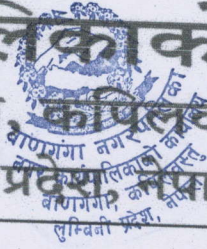 लिकाको
, कपिलव
प्रदेश, नेपा
बाणगंगा नगरपालिका
नगर कार्यपालिकाको कार्यालय
बाणगंगा, कपिलवस्तु
लुम्बिनी प्रदेश, नेपाल